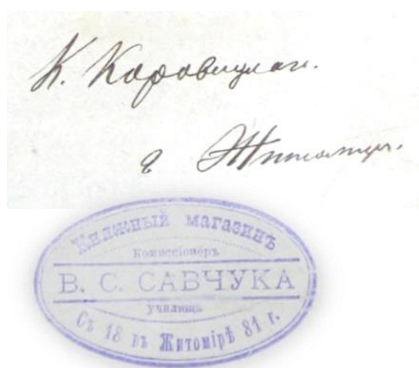 К. Коровицкаг.
г Житомир.
Книжный магазинъ
Комиссіонеръ
В. С. САВЧУКА
училищъ
Съ 18 въ Житомірѣ 81 г.